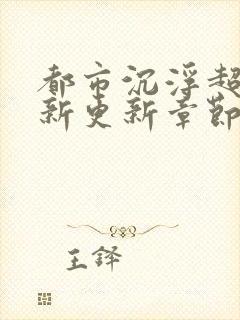 都市沉浮超
新更新章節
王鐸